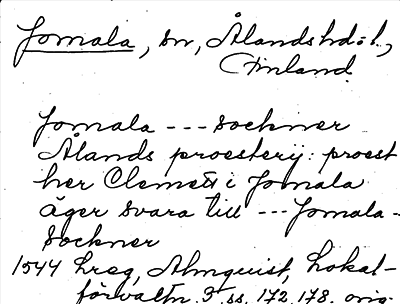 Jomala, sn, Ålandshdöl,
Finland.
Jomala --- sockner
Ålands proesterij: proest
her Clemett i Jomala
äger svara till --- Jomala-
sockner
1544 hreg, Almquist, Lokal-
förvaltn. 3, ss. 172, 178. orig.